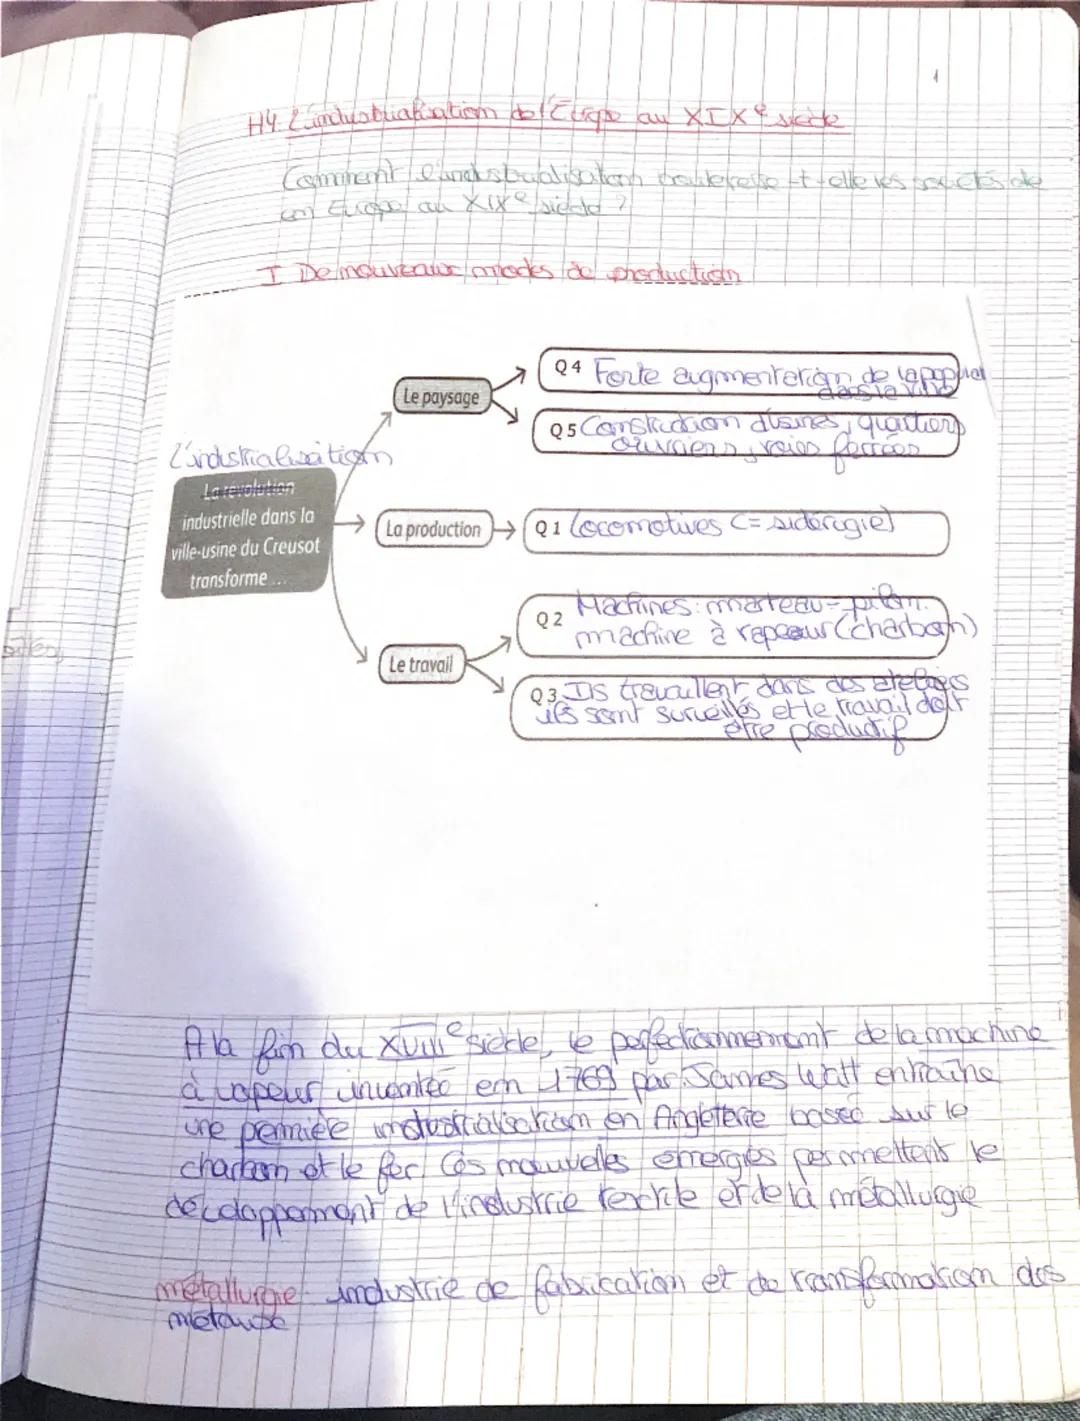 H4 L'industrialisation de l'Europe au XIXe siècle
Comment l'industrialisation bouleverse-t-elle les sociétés de
en Europe au XIXe siècle ?
I De nouveaux modes de production
Q4 Forte augmentation de la popul
dans la ville
Le paysage
Q5 Construction d'usines, quartiers
ouvriers, voies ferrées
L'industrialisation
La révolution
industrielle dans la
ville-usine du Creusot
transforme ...
La production
Q1 locomotives (= sidérugie)
Q2 Machines : marteau-pilon.
machine à rapeur (charbon)
Le travail
Q3 Ils travaillent dans des ateliers
ils sont surveillés et le travail doit
être productif
A la fin du XVIIIe siècle, le perfectionnement de la machine
à vapeur inventée en 1769 par James Watt entraîne
une permière industrialisation en Angleterre basée sur le
charbon et le fer. Ces nouvelles énergies permettent le
développement de l'industrie textile et de la métallurgie
métallurgie : industrie de fabrication et de transformation des
métaux